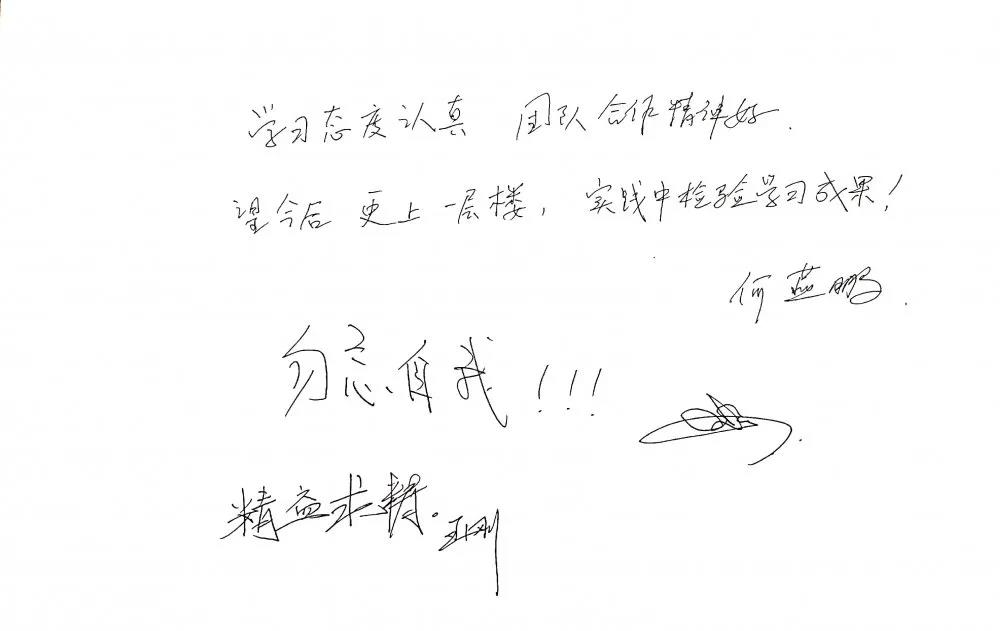 学习态度认真 团队合作精神好.
望今后更上一层楼, 实践中检验学习成果!
何燕鹏.
勿忘自我!!!
精益求精。王刚